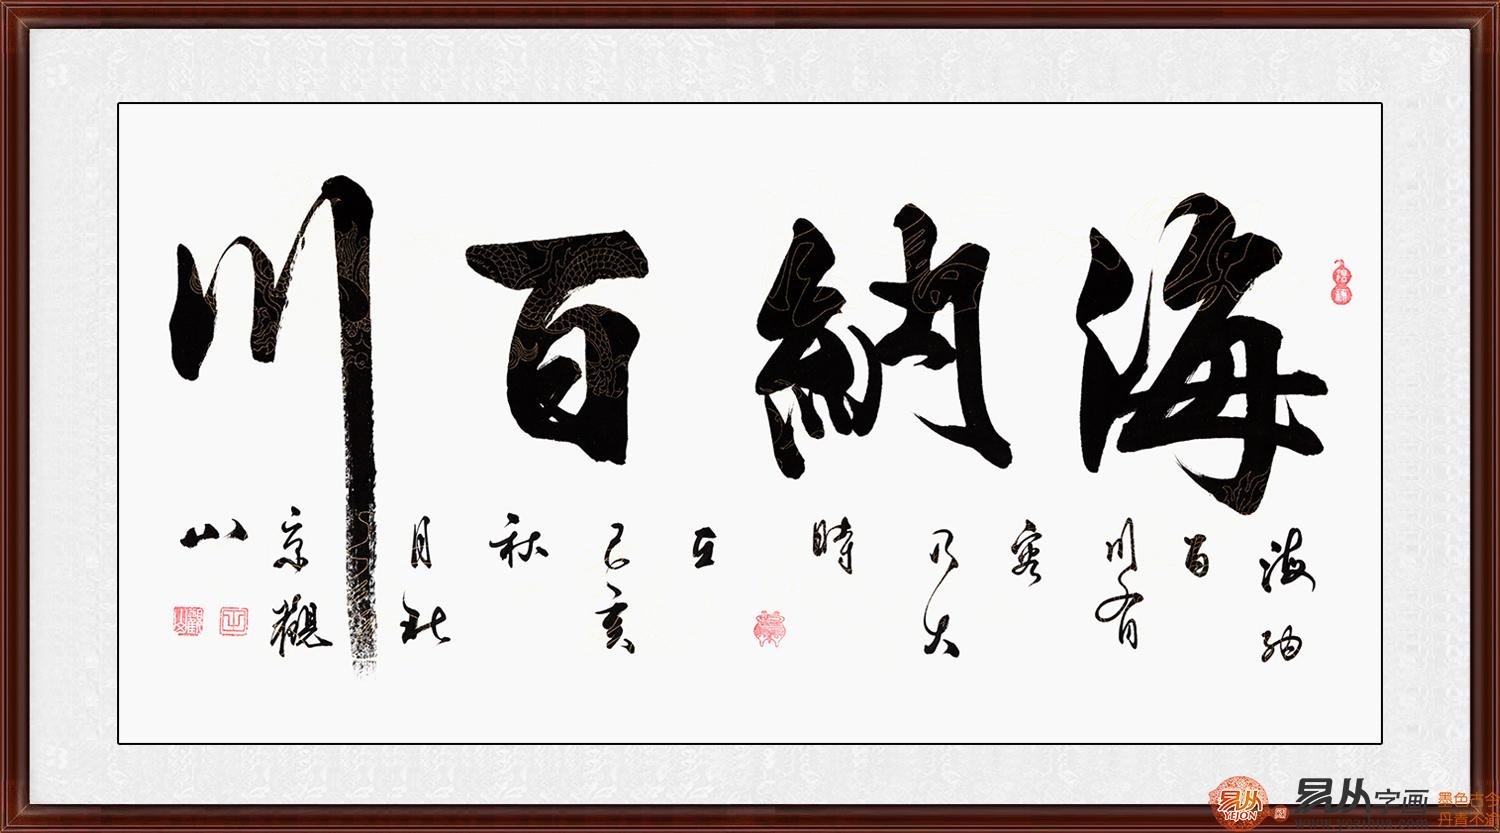 海納百川
海納
百
川有
容
乃大
時
在
己亥
秋
月於
京觀
山
易从字画
YEJON
墨色古今
丹青不渝